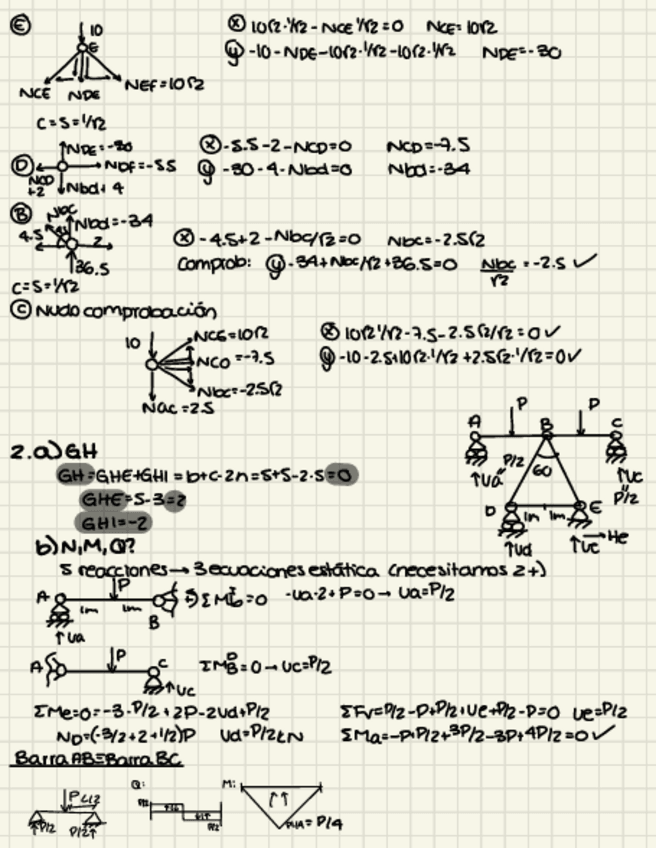 Ⓔ 10
E
NCE NDE NEF=10√2
C=S=1/√2
Ⓧ 10√2·1/√2-NCE 1/√2=0 NCE=10√2
Ⓨ -10-NDE-10√2·1/√2-10√2·1/√2 NDE=-30
Ⓓ NDE=-30
NDF=-5.5
NCD +2
Nbd+4
Ⓧ -5.5-2-NCD=0 NCD=-7.5
Ⓨ -30-4-Nbd=0 Nbd=-34
Ⓑ Nbc Nbd=-34
4.5 2
36.5
C=S=1/√2
Ⓧ -4.5+2-Nbc/√2=0 Nbc=-2.5√2
Comprob: Ⓨ -34+Nbc/√2+36.5=0 Nbc/√2=-2.5 ✓
Ⓒ Nudo comprobación
10 NCE=10√2
NCD=-7.5
Nbc=-2.5√2
Nac=2.5
Ⓧ 10√2 1/√2-7.5-2.5√2/√2=0 ✓
Ⓨ -10-2.5+10√2·1/√2+2.5√2·1/√2=0 ✓
P P
A B C
Va" P/2 60 Vc " P/2
D 1m 1m E
Vd Vc He
2.a) GH
GH=GHE+GHI=b+c-2n=5+5-2·5=0
GHE=5-3=2
GHI=-2
b) N,M,Q?
5 reacciones→3 ecuaciones estática (necesitamos 2+)
A P 1m 1m B
Va
ΣMb=0 -Va·2+P=0→Va=P/2
A P C
Vc
ΣMB=0→Vc=P/2
ΣMe=0=-3·P/2+2P-2Vd+P/2 ΣFv=P/2-P+P/2+Ve+P/2-P=0 Ve=P/2
ND=(-3/2+2+1/2)P Vd=P/2 kN ΣMa=-P+P/2+3P/2-3P+4P/2=0 ✓
Barra AB≡Barra BC
P L/2 Q: M:
P/2 P/2 P/2 P/2 =P/4